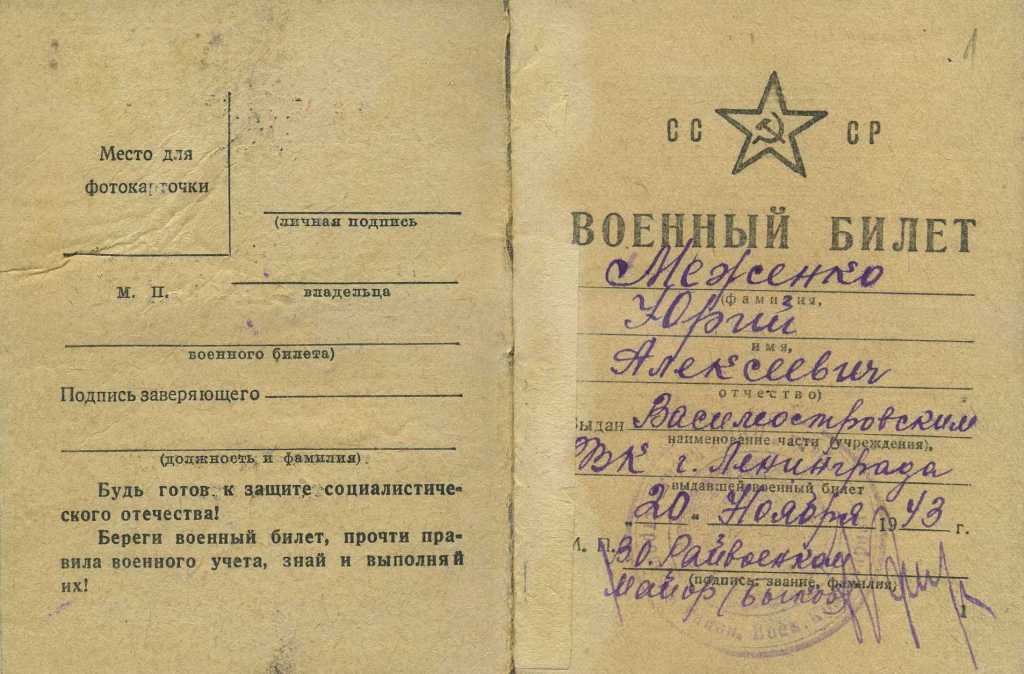 Место для
фотокарточки
(личная подпись
М. П.
владельца
военного билета)
Подпись заверяющего
(должность и фамилия)
Будь готов к защите социалистиче-
ского отечества!
Береги военный билет, прочти пра-
вила военного учета, знай и выполняй
их!
1
СС СР
ВОЕННЫЙ БИЛЕТ
Меженко
(фамилия,
Юрий
имя,
Алексеевич
отчество)
Выдан Василеостровским
наименование части (учреждения),
РВК г. Ленинграда
выдавшей военный билет
"20" Ноября 1943 г.
М. П. В.О. Райвоенком
(подпись, звание, фамилия)
Майор
1